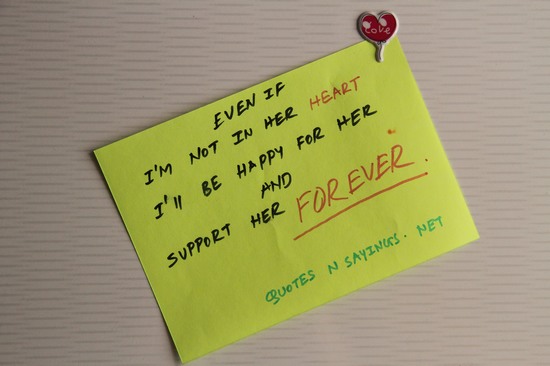 Love
EVEN IF
I'M NOT IN HER HEART
I'll BE HAPPY FOR HER
AND
SUPPORT HER FOREVER.
QUOTES N SAYINGS. NET